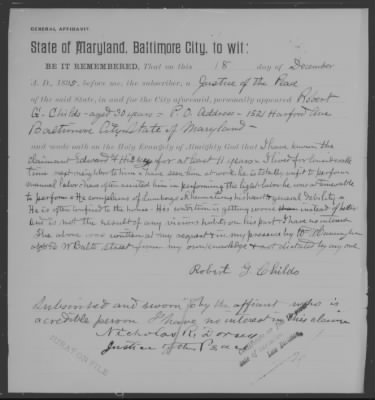 GENERAL AFFIDAVIT.
State of Maryland, Baltimore City, to wit:
BE IT REMEMBERED, That on this 18 day of December
A. D., 1895, before me, the subscriber, a Justice of the Peace
of the said State, in and for the City aforesaid, personally appeared Robert
G. Childs - aged 30 years = P. O. Address = 1521 Harford Ave
Baltimore City State of Maryland -
and made oath on the Holy Evangely of Almighty God that I have known the
claimant Edward for at least 11 years. I lived for
time next neighbor to him & have seen him at work he is totally unfit to perform
manual labor have often assisted him in performing the light labor he was
to perform. He complains of lumbago & rheumatism & heart & general debility
He is often confined to the house. His condition is getting worse instead of better
but is not the result of any vicious habits on his part. I have no interest
The above was written at my request & in my presence by
W Balto. Street from my own knowledge & not dictated by any one
Robert G. Childs
Subscribed and sworn to by the affiant who is
a credible person I have no interest in this claim
Nicholas R. Dorsey
Justice of the Peace
JURAT ON FILE